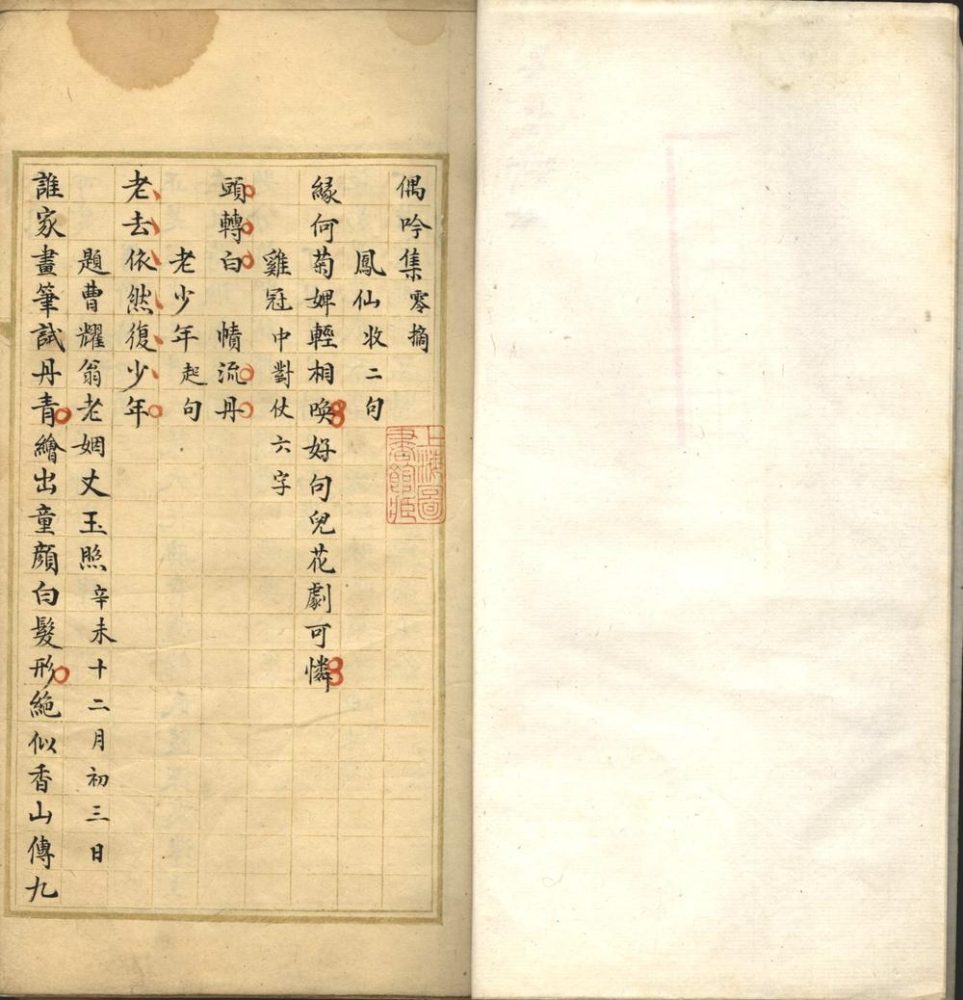 偶吟集零摘
鳳仙收二句
緣何菊婢輕相喚好句兒花劇可憐
雞冠中對仗六字
頭轉白　幘流丹
老少年起句
老去依然復少年
題曹耀翁老姻丈玉照辛未十二月初三日
誰家畫筆試丹青繪出童顏白髮形絕似香山傳九
上海圖書館藏